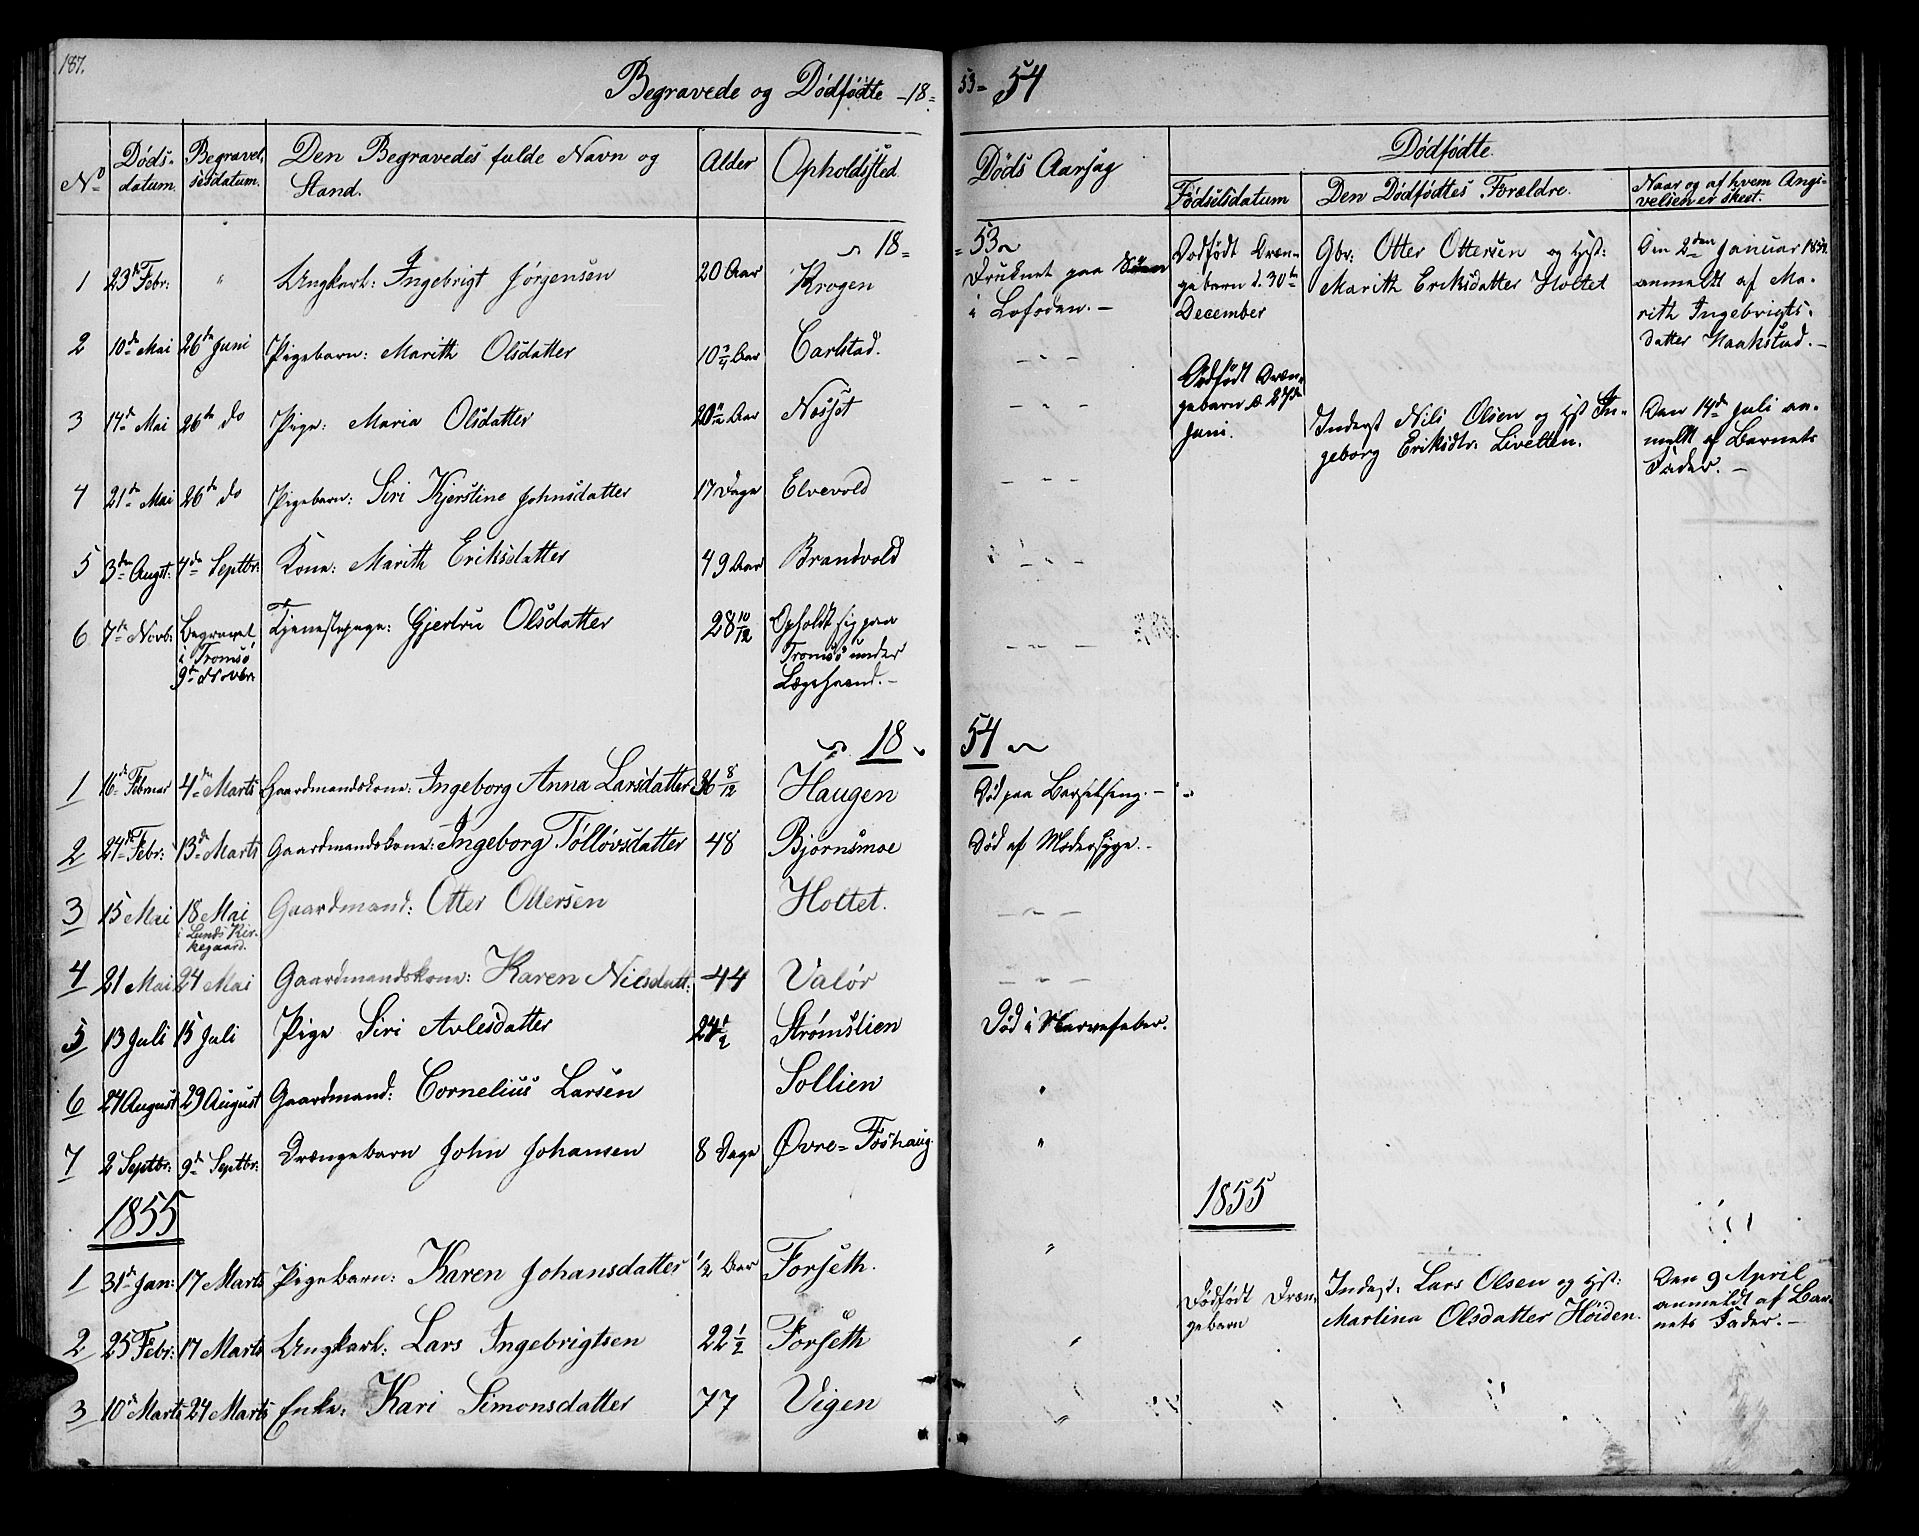 187.
Begravede og Dødfødte -18=53= 54
No
Døds-datum.
Begravel-sesdatum.
Den Begravedes fulde Navn og Stand.
Alder
Opholdssted.
Døds Aarsag
Dødfødte.
Fødselsdatum
Den Dødfødtes Forældre.
Naar og af hvem Angi-velsen er skeet.
18= =53
1 23de Febr: " Ungkarl: Ingebrigt Jørgensen 20 Aar Krogen Druknet paa Søen i Lofoden. -
2 10de Mai 26de Juni Pigebarn: Marith Olsdatter 10 3/4 Aar Carlstad. - " -
3 14de Mai 26de do Pige: Maria Olsdatter Aar Nosset - " -
4 21de Mai 26de do Pigebarn: Siri Kjerstine Johnsdatter 17 Dage Elvevold - " -
5 3de Augst: 4de Septbr: Kone: Marith Eriksdatter 49 Aar Brandvold - " -
6 7de Novb: Begravet i Tromsø 9de Novbr. Tjenestepige: Gjertru Olsdatter 28 10/12 Opholdt sig paa Tromsø under Lægehaand. - - " -
Dødfødt Dræn-gebarn d. 30te December
Gbr: Otter Ottersen og Hst: Marith Eriksdatter Holtet
Den 2den Januar 1854. anmeldt af Ma-rith Ingebrigts-datter Haakstad. -
Dødfødt Dræn-gebarn d. 27de Juni.
Inderst Nils Olsen og Hst In-geborg Eriksdtr. Livelten.
Den 14de Juli an-meldt af Barnets Fader. -
18 54
1 16de Februar 4de Marts Gaardmandskone: Ingeborg Anna Larsdatter 36 8/12 Haugen Død paa Barselseng. -
2 24de Febr: 13de Marts Gaardmandskone: Ingeborg Tølløvsdatter 48 Bjørnsmoe Død af Modersyge. -
3 15 Mai 18 Mai i Lunds Kir-kegaard. Gaardmand: Otter Ottersen Holtet. - " -
4 21 Mai 24 Mai Gaardmandskone: Karen Nilsdatt: 44 Valør - " -
5 13 Juli 15 Juli Pige Siri Avlesdatter 24 1/2 Strømslien Død i Nervefeber.
6 27 August 29 August Gaardmand: Cornelius Larsen Sollien "
7 2 Septbr: 9de Septbr: Drængebarn John Johansen 8 Dage Øvre=Foshaug. "
1855
1855
1 31de Jan: 17 Marts Pigebarn: Karen Johansdatter 1/2 Aar Forseth. "
2 25 Febr: 17 Marts Ungkarl: Lars Ingebrigtsen 22 1/2 Forseth "
3 10de Marts 24 Marts Enke: Kari Simonsdatter 77 Vigen "
Dødfødt Dræn-gebarn
Inderst: Lars Olsen og Hst: Martina Olsdatter Høiden.
Den 9 April anmeldt af Bar-nets Fader. -